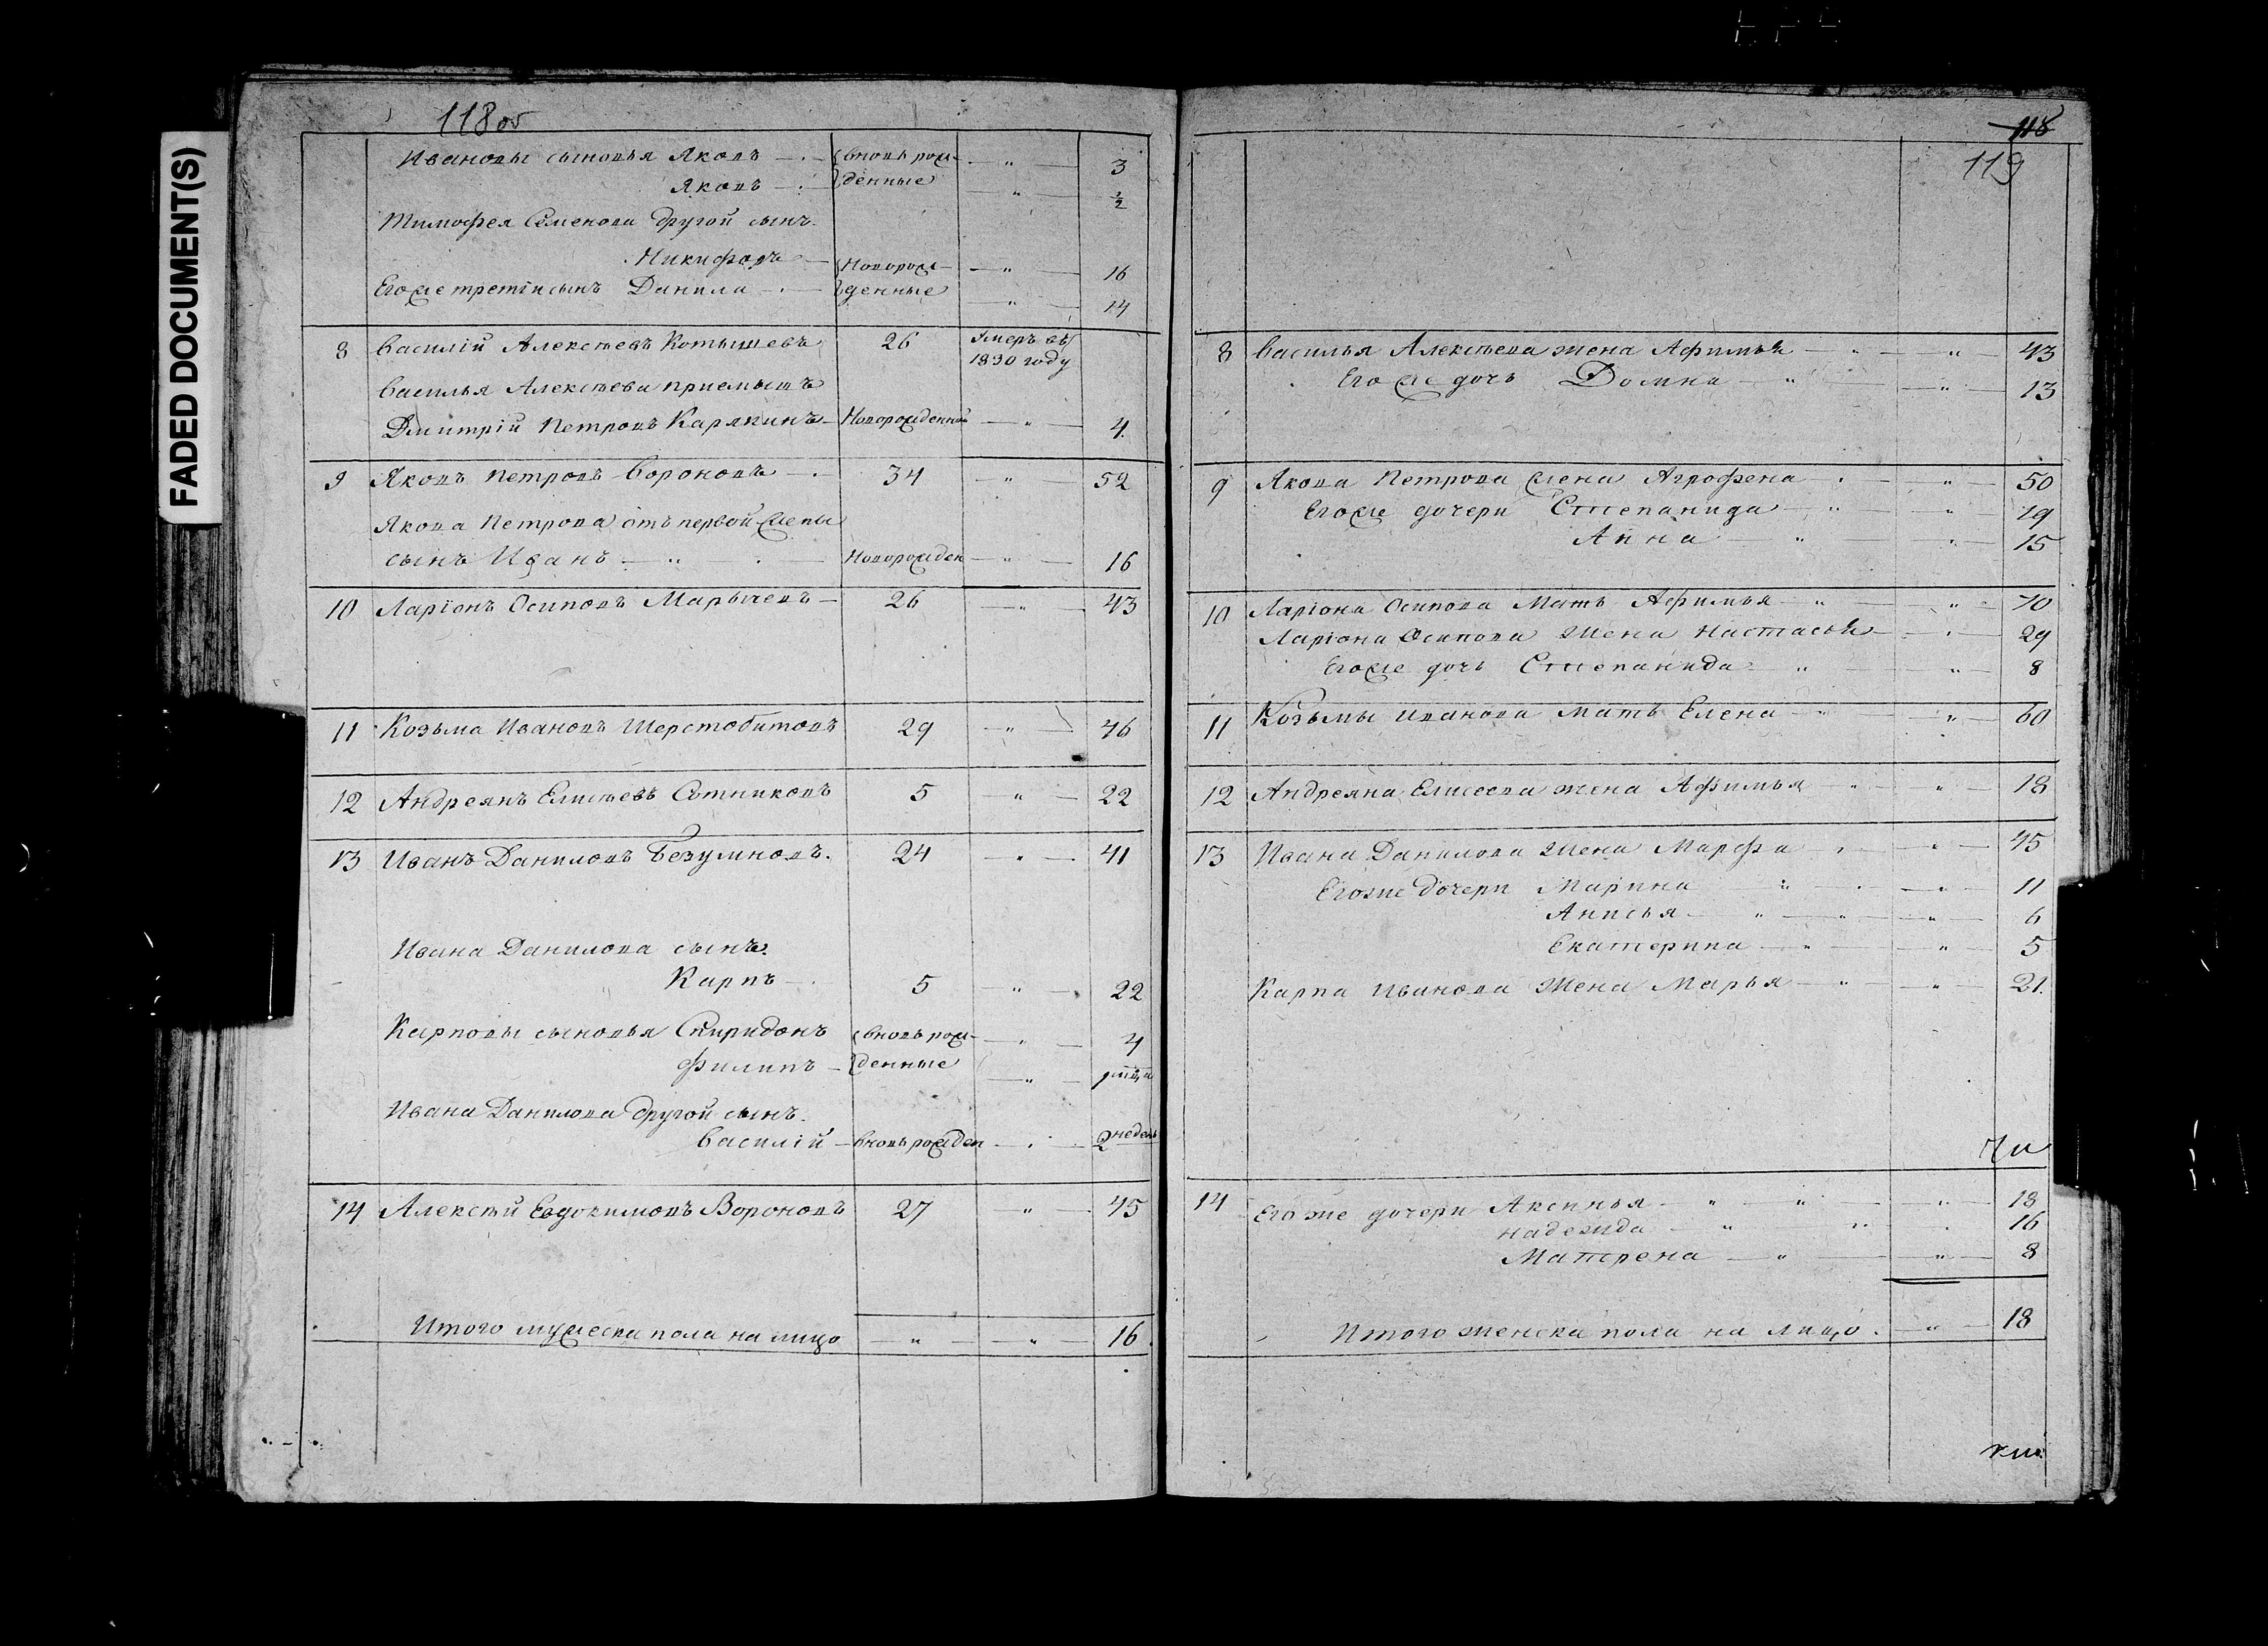 FADED DOCUMENT(S)
118 об
Ивановы сыновья Яковъ вновь рож- " 3
Яковъ денные " ½
Тимофея Семенова другой сынъ
Никифоръ Новорож- " 16
Егоже третiй сынъ Данила денные " 14
8 Василiй Алексѣевъ Котышевъ 26 Умеръ въ
1830 году
Василья Алексѣева приемышъ
Дмитрiй Петровъ Карякинъ Новорожденной " 4
9 Яковъ Петровъ Вороновъ 34 " 52
Якова Петрова отъ первой жены
сынъ Иванъ " Новорожден " 16
10 Ларiонъ Осиповъ Марычевъ 26 " 43
11 Козьма Ивановъ Шерстобитовъ 29 " 46
12 Андреянъ Елисѣевъ Сотниковъ 5 " 22
13 Иванъ Даниловъ Безумновъ. 24 " 41
Ивана Данилова сынъ
Карпъ 5 " 22
Карповы сыновья Спиридонъ вновь рож- " 4
Филипъ денные "
Ивана Данилова другой сынъ.
Василiй вновь рожден " 2 недель
14 Алексѣй Евдокимовъ Вороновъ 27 " 45
Итого мужеска пола на лицо " " 16
118
119
8 Василья Алексѣева жена Афимья " " 43
Егоже дочь Домна " " 13
9 Якова Петрова жена Агрофена " 50
Егоже дочери Степанида " " 19
Анна " " 15
10 Ларiона Осипова Мать Афимья " " 70
Ларiона Осипова Жена Настасья " 29
Егоже дочь Степанида " " 8
11 Козьмы Иванова Мать Елена " " 60
12 Андреяна Елисеева жена Афимья " " 18
13 Ивана Данилова Жена Марфа " " 45
Егоже дочери Марина " " 11
Анисья " " " 6
Екатерина " " 5
Карпа Иванова Жена Марья " " 21.
14 Егоже дочери Аксинья " " " 18
Надежда " " " 16
Матрена " " 8
Итого женска пола на лицо. " 18